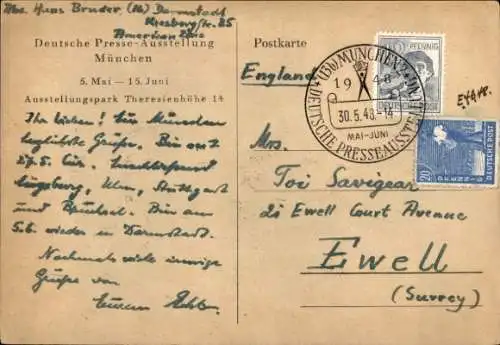 Abs. Hans Bruder, (16) Darmstadt
American Zone
Deutsche Presse-Ausstellung
München
5. Mai — 15. Juni
Ausstellungspark Theresienhöhe 14
Ihr Lieben! Aus München
herzliche Grüße. Bin seit
27.5. hier. Anschließend
Augsburg, Ulm, Stuttgart
und Bruchsal. Bin am
5.6. wieder in Darmstadt.
Nochmals viele innige
Grüße von
Postkarte
England
MÜNCHEN
1948
30.5.48.-14
MAI-JUNI
DEUTSCHE PRESSEAUSSTELLUNG
PFENNIG
DEUTSCHE POST
20
PFENNIG
DEUTSCHE POST
Mrs.
Toi Savigear
21 Ewell Court Avenue
Ewell
(Surrey)